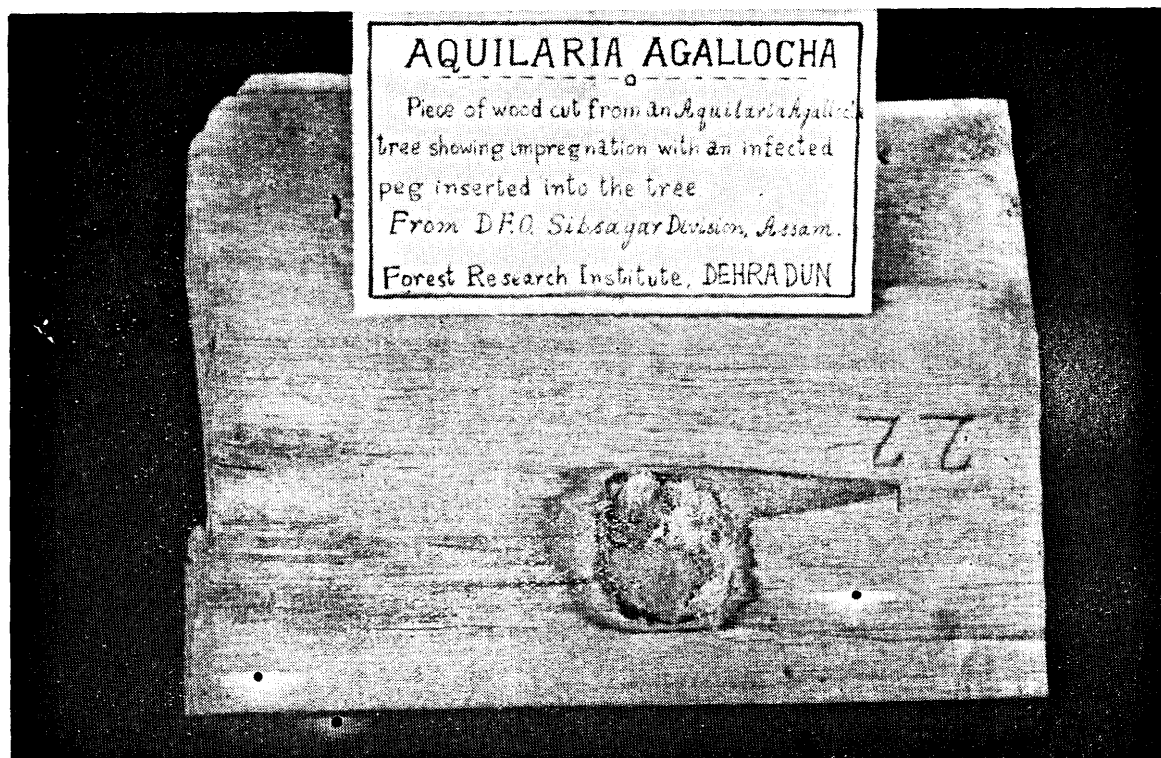 AQUILARIA AGALLOCHA
Piece of wood cut from an Aquilaria Agallocha
tree showing impregnation with an infected
peg inserted into the tree
From D.F.O. Sibsagar Division, Assam.
Forest Research Institute, DEHRA DUN
22